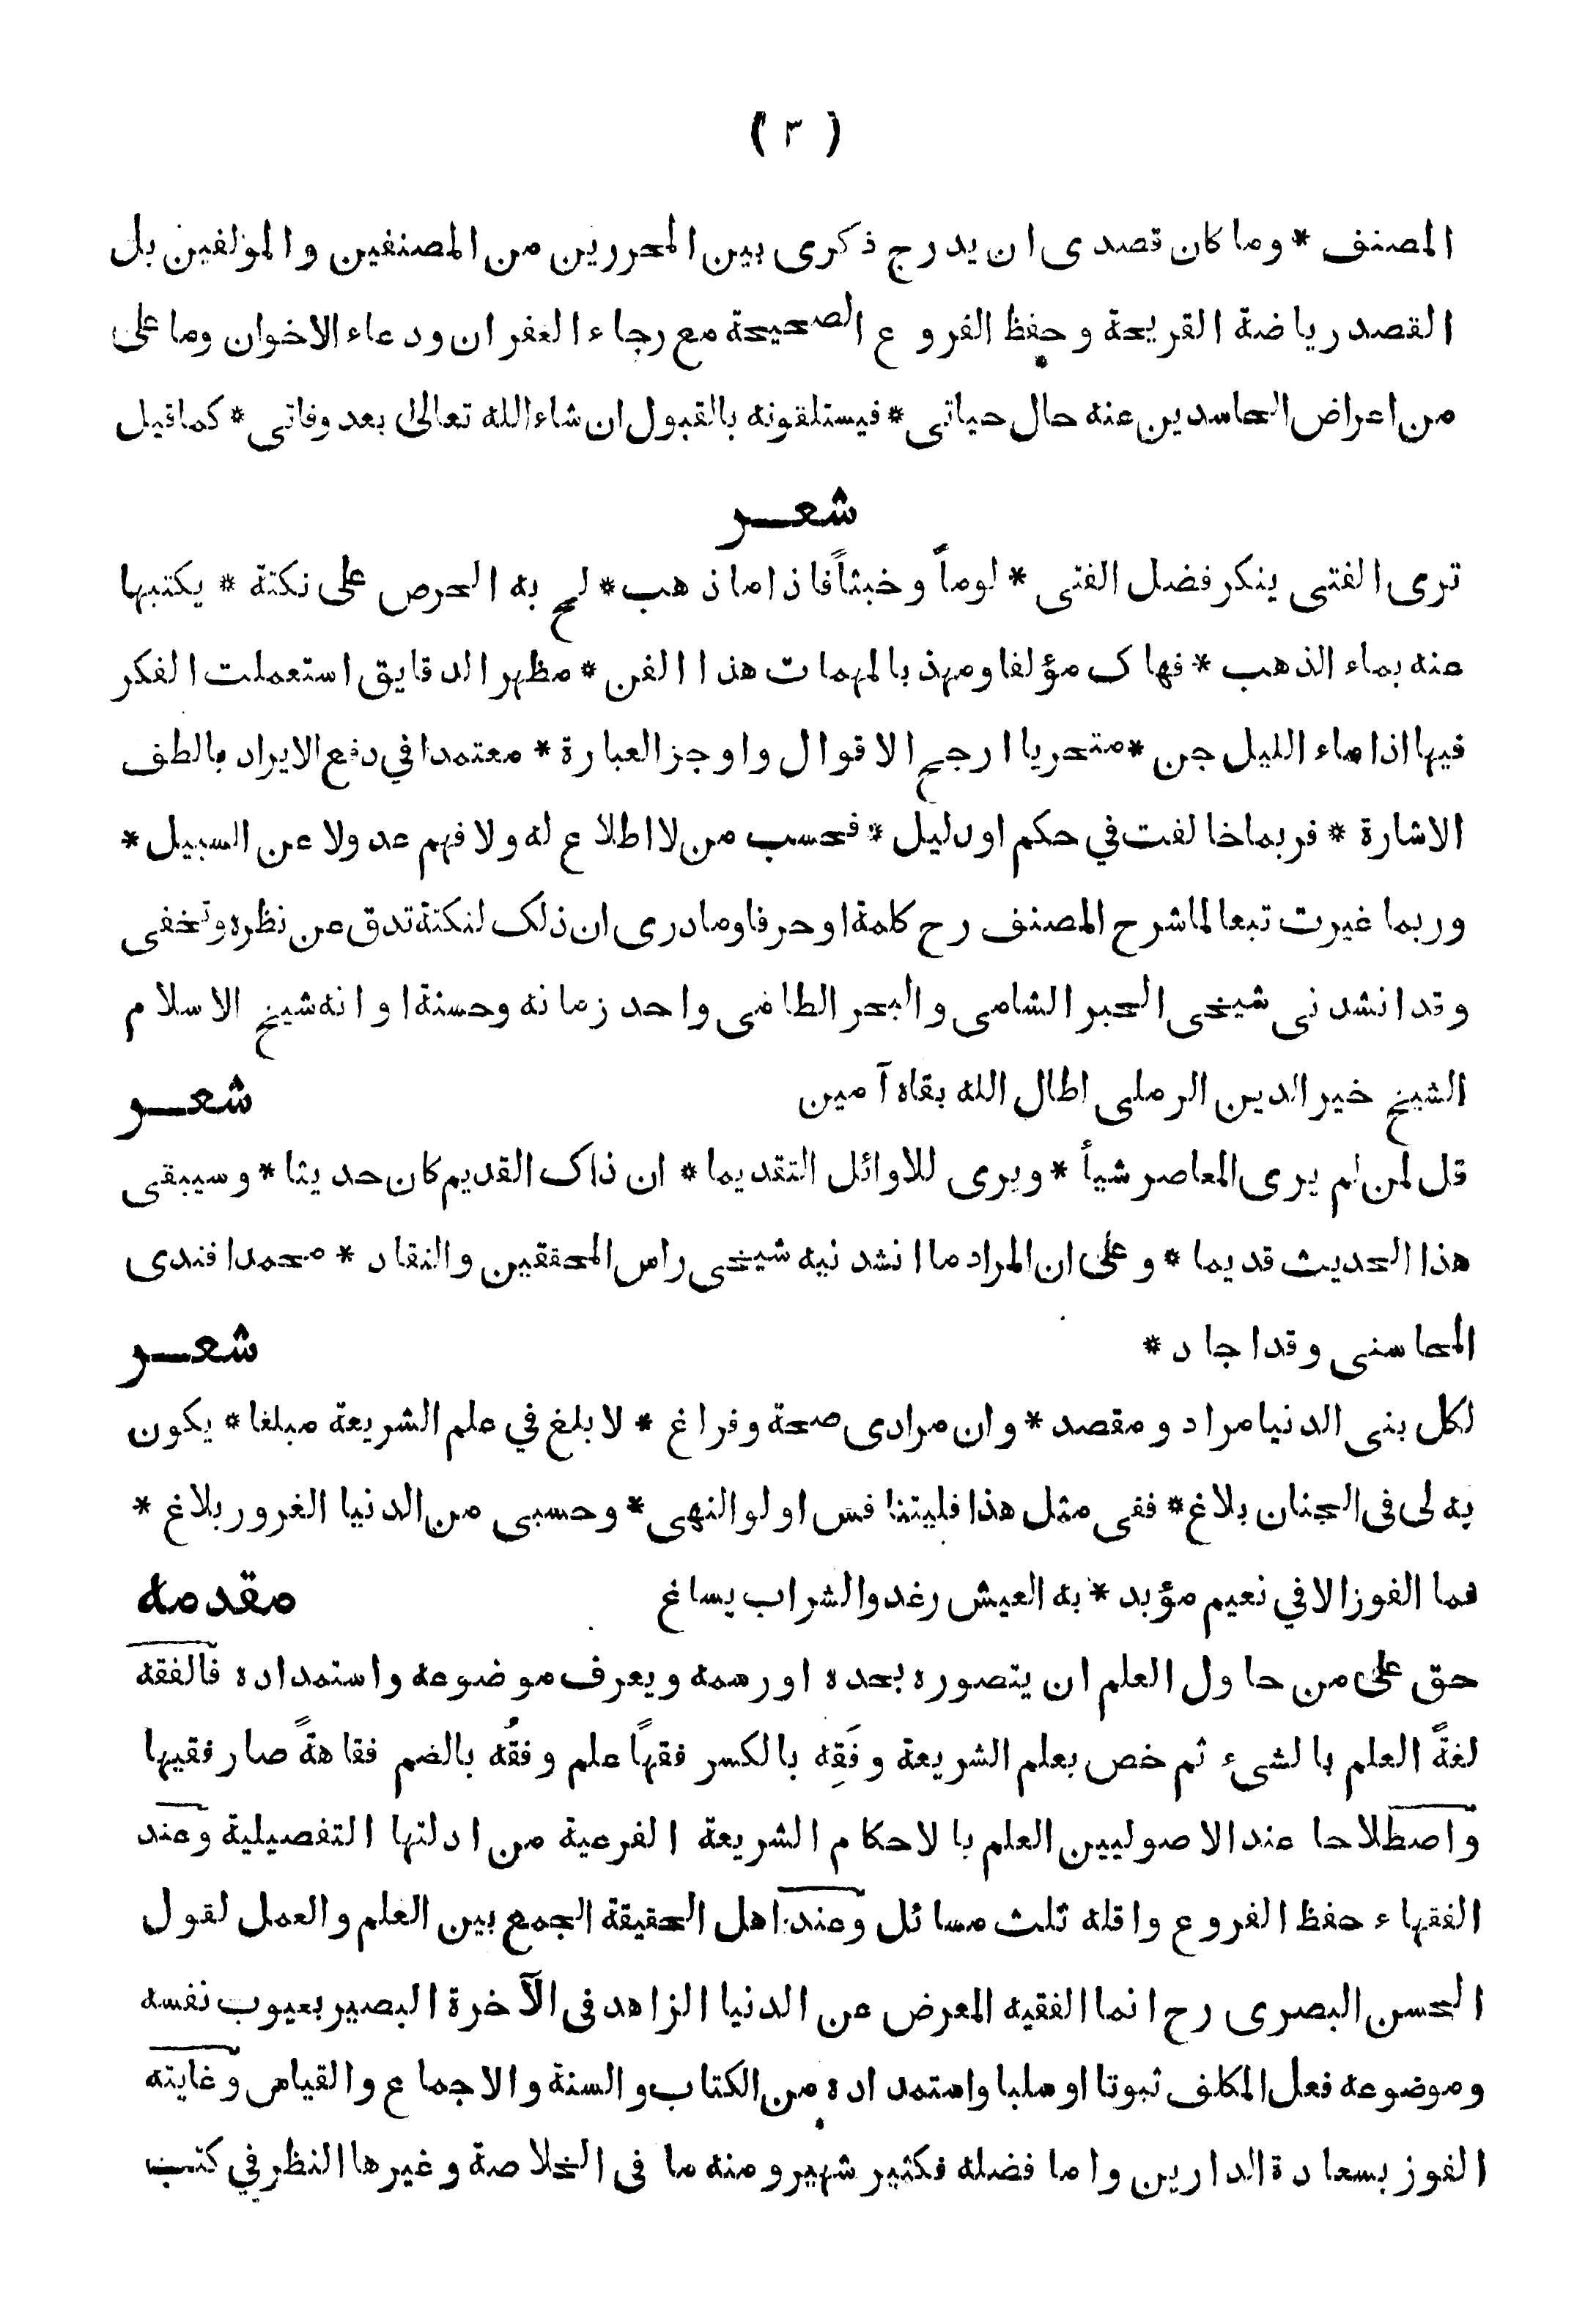 ( ٣ )
المصنف * وما كان قصدى ان يدرج ذكرى بين المحررين من المصنفين والمؤلفين بل
القصد رياضة القريحة وحفظ الفروع الصحيحة مع رجاء الغفران ودعاء الاخوان وما على
من اعراض الحاسدين عنه حال حياتى * فيستلقونه بالقبول ان شاء الله تعالى بعد وفاتى * كما قيل
شعر
ترى الفتى ينكر فضل الفتى * لوماً وخبثاً فاذا ما ذهب * لج به الحرص على نكتة * يكتبها
عنه بماء الذهب * فهاك مؤلفا ومهذبا لمهمات هذا الفن * مظهر الدقايق استعملت الفكر
فيها اذا ماء الليل جن * متحريا ارجح الاقوال واوجز العبارة * معتمدا في دفع الايراد بالطف
الاشارة * فربما خالفت في حكم او دليل * فحسب من لا اطلاع له ولا فهم عدولا عن السبيل *
وربما غيرت تبعا لما شرح المصنف رح كلمة او حرفا وما درى ان ذلك لنكتة تدق عن نظره وتخفى
وقد انشدنى شيخى الحبر الشامى والبحر الطامى واحد زمانه وحسنة اوانه شيخ الاسلام
الشيخ خير الدين الرملى اطال الله بقاه آمين شعر
قل لمن لم يرى المعاصر شيأ * ويرى للاوائل التقديما * ان ذاك القديم كان حديثا * وسيبقى
هذا الحديث قديما * وعلى ان المراد ما انشدنيه شيخى راس المحققين والنقاد * محمد افندى
المحاسنى وقد اجاد * شعر
لكل بنى الدنيا مراد ومقصد * وان مرادى صحة وفراغ * لابلغ في علم الشريعة مبلغا * يكون
به لى فى الجنان بلاغ * ففى مثل هذا فليتنافس اولو النهى * وحسبى من الدنيا الغرور بلاغ *
فما الفوز الا في نعيم مؤبد * به العيش رغد والشراب يساغ مقدمه
حق على من حاول العلم ان يتصوره بحده او رسمه ويعرف موضوعه واستمداده فالفقه
لغةً العلم بالشىء ثم خص بعلم الشريعة وفَقِه بالكسر فقهاً علم وفقُه بالضم فقاهةً صار فقيها
واصطلاحا عند الاصوليين العلم بالاحكام الشريعة الفرعية من ادلتها التفصيلية وعند
الفقهاء حفظ الفروع واقله ثلث مسائل وعند اهل الحقيقة الجمع بين العلم والعمل لقول
الحسن البصرى رح انما الفقيه المعرض عن الدنيا الزاهد فى الآخرة البصير بعيوب نفسه
وموضوعه فعل المكلف ثبوتا او سلبا واستمداده من الكتاب والسنة والاجماع والقياس وغايته
الفوز بسعادة الدارين واما فضله فكثير شهير ومنه ما فى الخلاصة وغيرها النظر في كتب